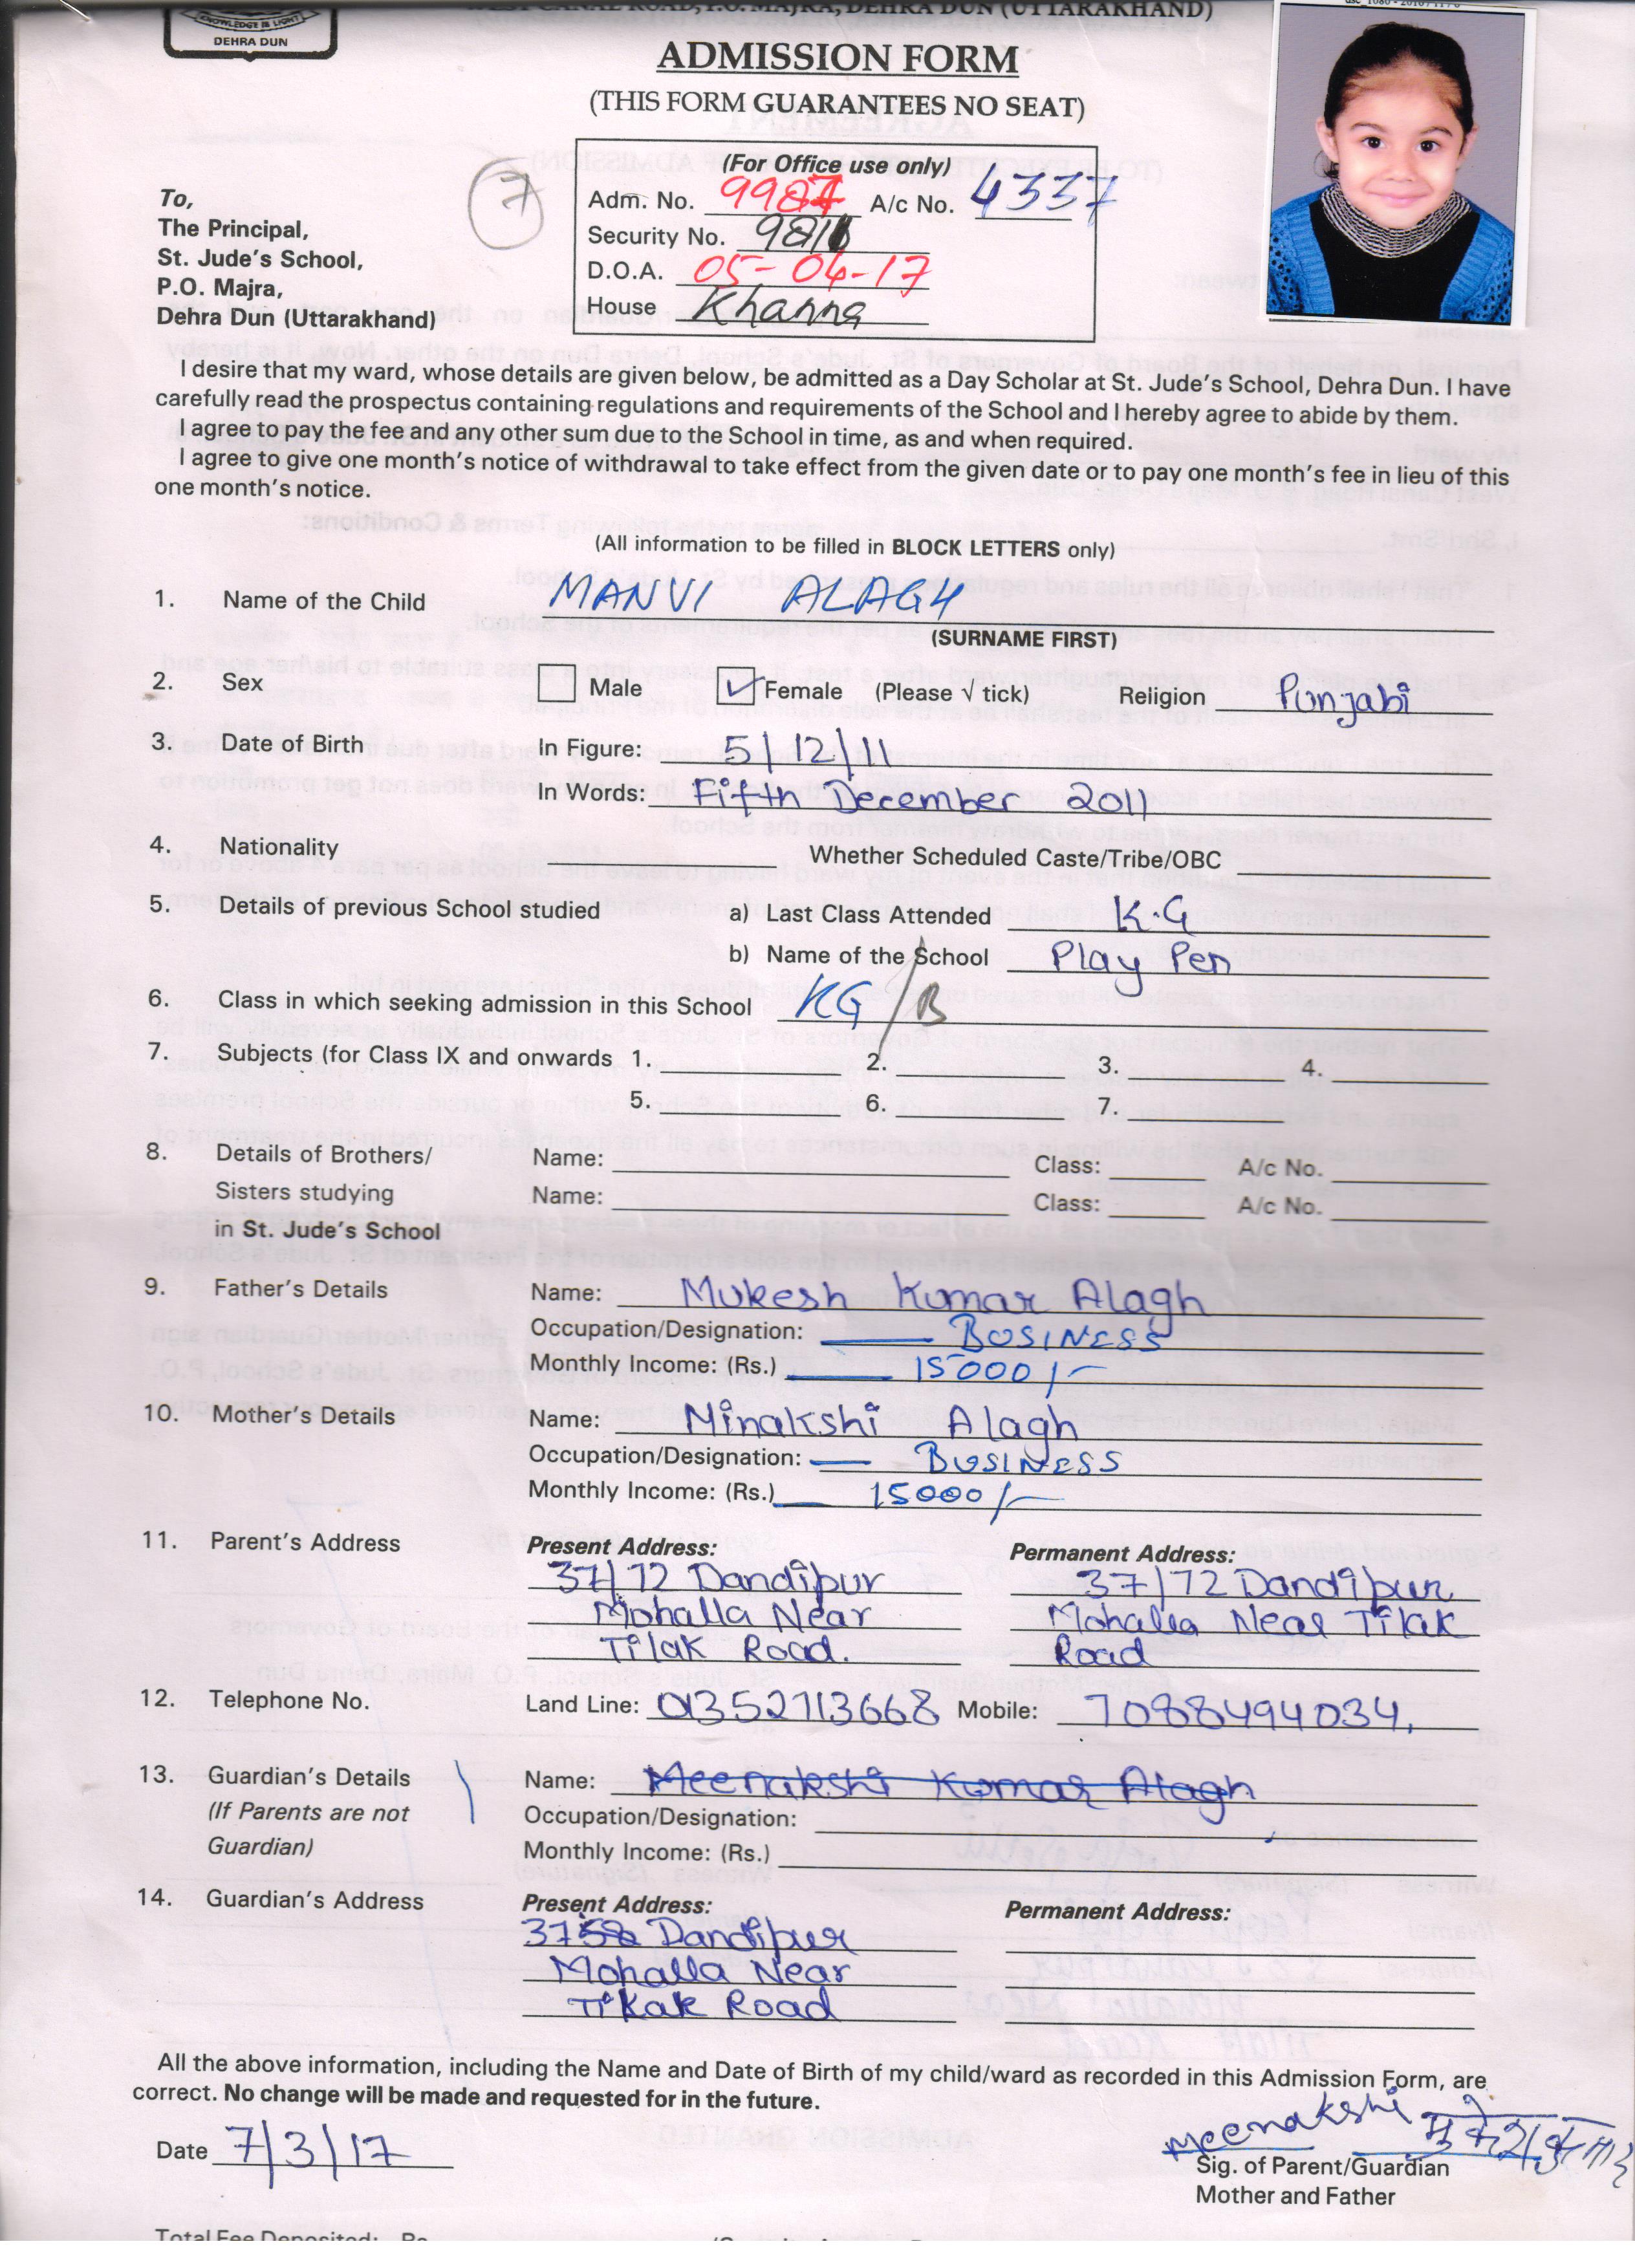 KNOWLEDGE IS LIGHT
DEHRA DUN
WEST CANAL ROAD, P.O. MAJRA, DEHRA DUN (UTTARAKHAND)
ADMISSION FORM
(THIS FORM GUARANTEES NO SEAT)
7
(For Office use only)
Adm. No. 9987 A/c No. 4337
Security No.
D.O.A. 05-04-17
House Khanna
To,
The Principal,
St. Jude's School,
P.O. Majra,
Dehra Dun (Uttarakhand)
I desire that my ward, whose details are given below, be admitted as a Day Scholar at St. Jude's School, Dehra Dun. I have
carefully read the prospectus containing regulations and requirements of the School and I hereby agree to abide by them.
I agree to pay the fee and any other sum due to the School in time, as and when required.
I agree to give one month's notice of withdrawal to take effect from the given date or to pay one month's fee in lieu of this
one month's notice.
(All information to be filled in BLOCK LETTERS only)
1. Name of the Child MANVI ALAGH
(SURNAME FIRST)
2. Sex Male Female (Please √ tick) Religion Punjabi
3. Date of Birth In Figure: 5/12/11
In Words: Fifth December 2011
4. Nationality Whether Scheduled Caste/Tribe/OBC
5. Details of previous School studied a) Last Class Attended K.G
b) Name of the School Play Pen
6. Class in which seeking admission in this School KG/B
7. Subjects (for Class IX and onwards 1. 2. 3. 4.
5. 6. 7.
8. Details of Brothers/ Name: Class: A/c No.
Sisters studying Name: Class: A/c No.
in St. Jude's School
9. Father's Details Name: Mukesh Kumar Alagh
Occupation/Designation: BUSINESS
Monthly Income: (Rs.) 15000/-
10. Mother's Details Name: Minakshi Alagh
Occupation/Designation: BUSINESS
Monthly Income: (Rs.) 15000/-
11. Parent's Address Present Address: Permanent Address:
37/72 Dandipur 37/72 Dandipur
Mohalla Near Mohalla Near Tilak
Tilak Road. Road
12. Telephone No. Land Line: 01352713668 Mobile: 7088494034,
13. Guardian's Details Name: Meenakshi Kumar Alagh
(If Parents are not Occupation/Designation:
Guardian) Monthly Income: (Rs.)
14. Guardian's Address Present Address: Permanent Address:
Dandipur
Mohalla Near
Tikak Road
All the above information, including the Name and Date of Birth of my child/ward as recorded in this Admission Form, are
correct. No change will be made and requested for in the future.
Date 7/3/17 Meenakshi
Sig. of Parent/Guardian
Mother and Father
Total Fee Deposited: Rs